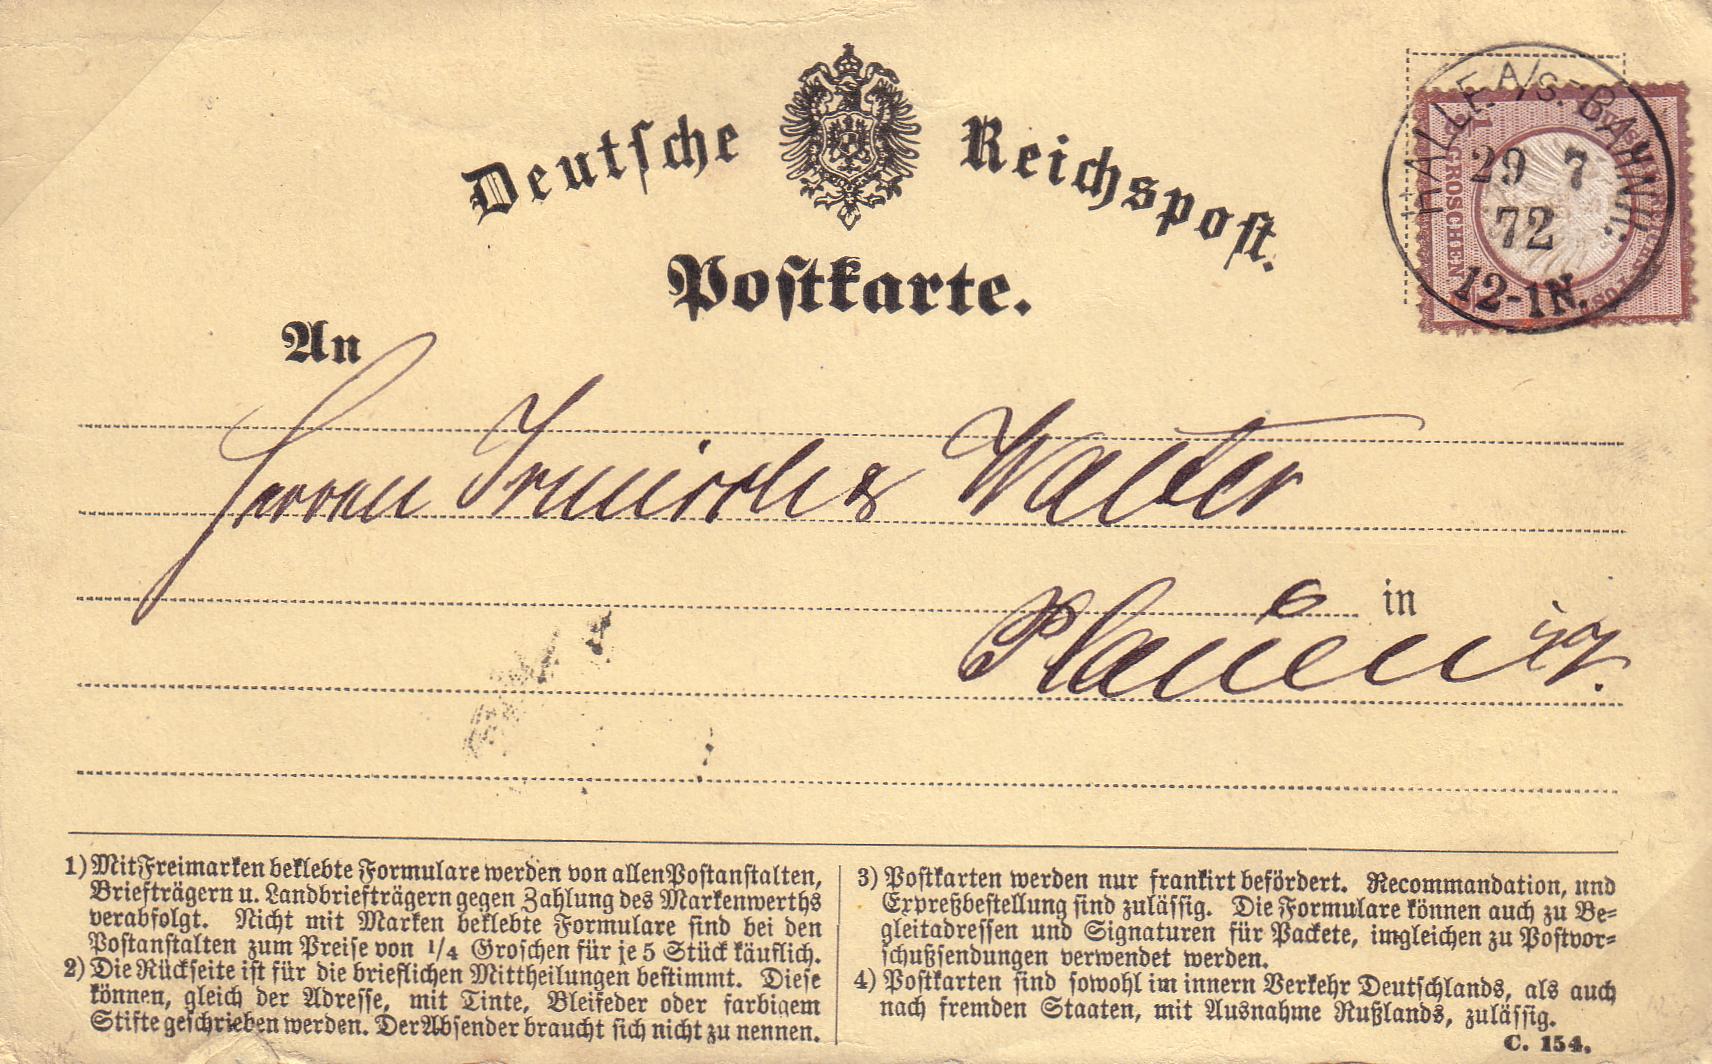 Deutsche Reichspost.
Postkarte.
HALLE A/S. BAHNH.
29 7
72
12-1N.
1
GROSCHEN
An
Herren Irmisch & Walter
in
Plauen i/V.
1) Mit Freimarken beklebte Formulare werden von allen Postanstalten,
Briefträgern u. Landbriefträgern gegen Zahlung des Markenwerths
verabfolgt. Nicht mit Marken beklebte Formulare sind bei den
Postanstalten zum Preise von 1/4 Groschen für je 5 Stück käuflich.
2) Die Rückseite ist für die brieflichen Mittheilungen bestimmt. Diese
können, gleich der Adresse, mit Tinte, Bleifeder oder farbigem
Stifte geschrieben werden. Der Absender braucht sich nicht zu nennen.
3) Postkarten werden nur frankirt befördert. Recommandation, und
Expreßbestellung sind zulässig. Die Formulare können auch zu Be-
gleitadressen und Signaturen für Packete, imgleichen zu Postvor-
schußsendungen verwendet werden.
4) Postkarten sind sowohl im innern Verkehr Deutschlands, als auch
nach fremden Staaten, mit Ausnahme Rußlands, zulässig.
C. 154.